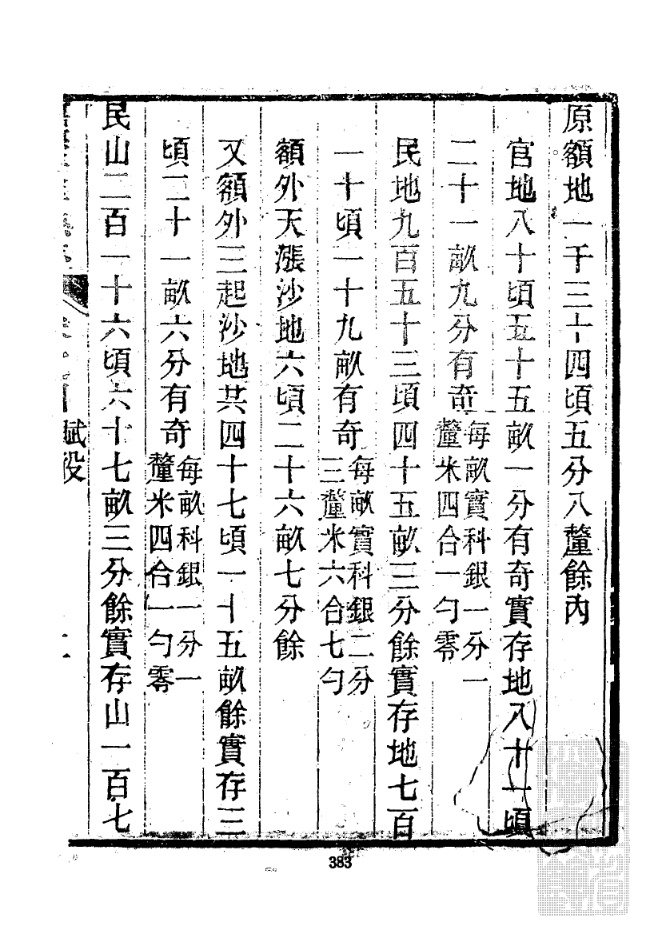 原額地一千三十四頃五分八釐餘內
官地八十頃五十五畝一分有奇實存地八十一頃
二十一畝九分有奇每畝實科銀一分一
釐米四合一勺零
民地九百五十三頃四十五畝三分餘實存地七百
一十頃一十九畝有奇每畝實科銀二分
三釐米六合七勺
額外天漲沙地六頃二十六畝七分餘
又額外三起沙地共四十七頃一十五畝餘實存三
頃二十一畝六分有奇每畝科銀一分一
釐米四合一勺零
民山二百一十六頃六十七畝三分餘實存山一百七
賦役
383